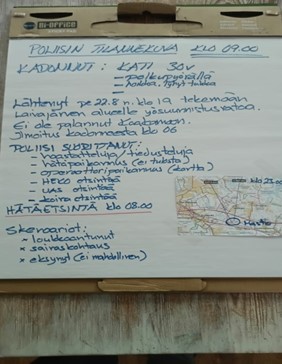 Bi-OFFICE
POLIISIN TILANNEKUVA klo 09.00
KADONNUT: KATI 30v
– polkupyörällä
– hoikka, lyhyt tukka
–
Lähtenyt pe 22.8 n. klo 19 tekemään
Lanajärven alueelle yösuunnistusrataa.
Ei ole palannut kotiinsa.
Ilmoitus kadonneesta klo 06
POLIISI SUORITTANUT:
– haastatteluja/tiedusteluja
– hätäpaikannus (ei tulosta)
– operaattoripaikannus (kartta)
– HEKO etsintää
– UAS etsintää
– koira etsintää
klo 23.00
HÄTÄETSINTÄ klo 08.00
Skenaariot:
* loukkaantunut
* sairaskohtaus
* eksynyt (ei mahdollinen)